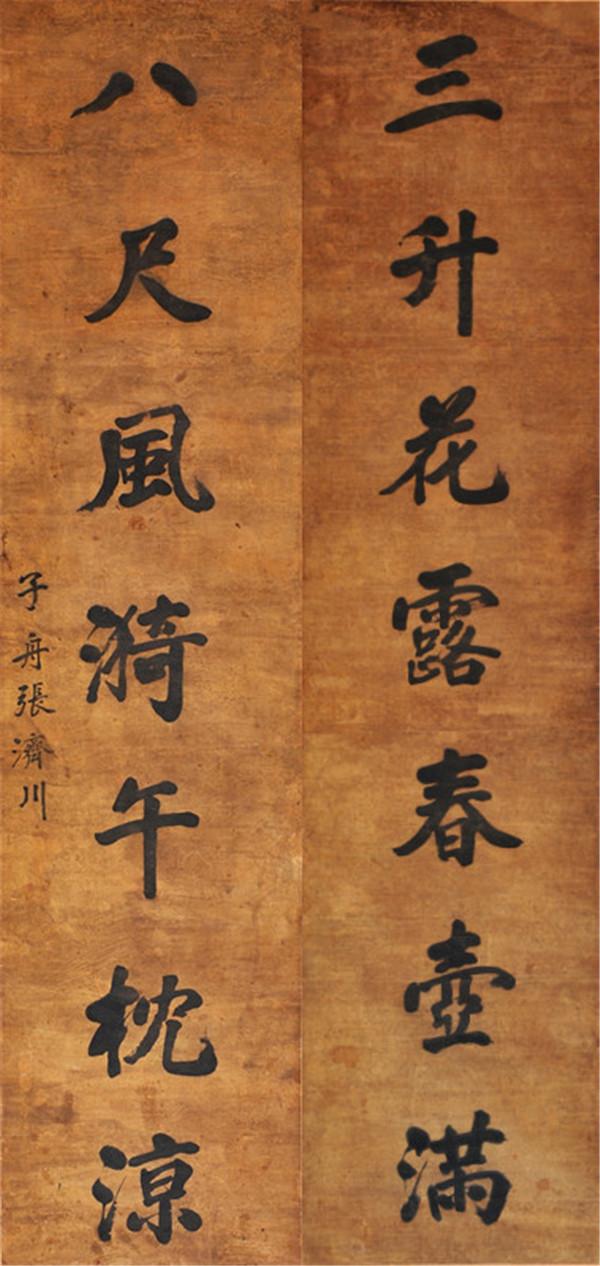 三升花露春壺滿
八尺風漪午枕涼
子舟張濟川